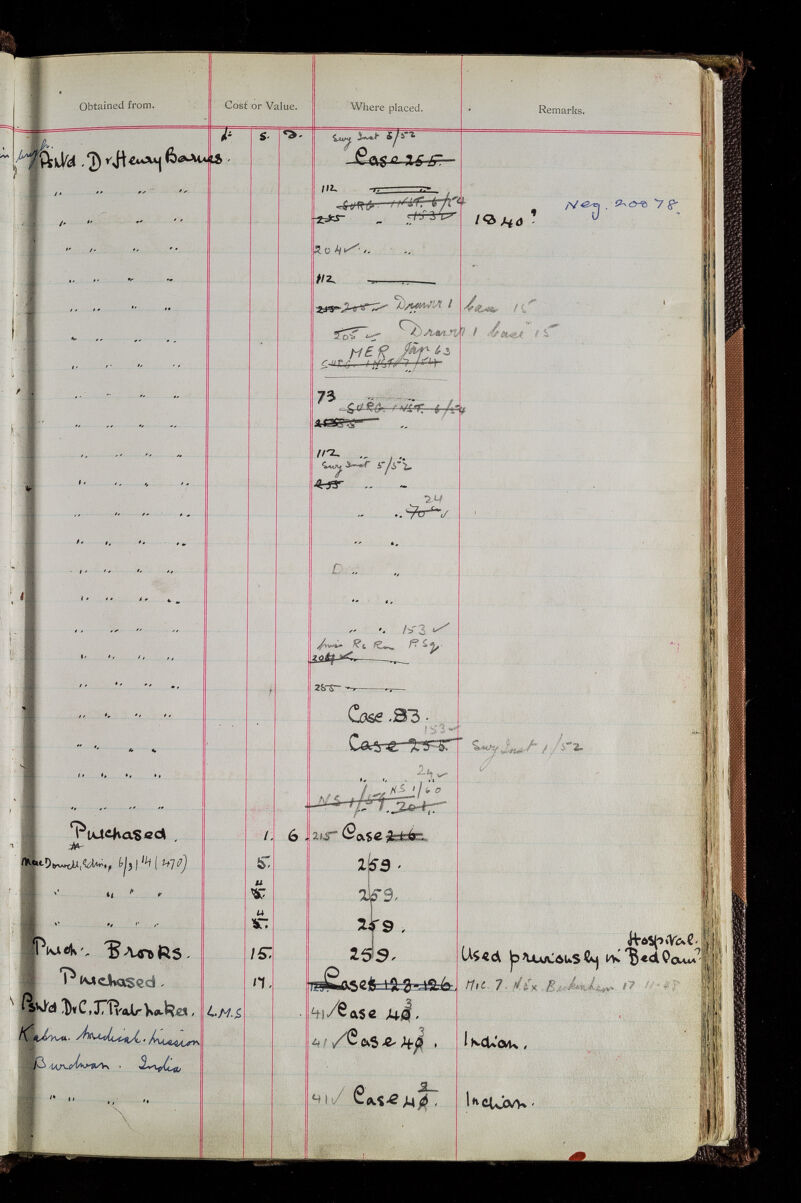 Obtained from. Cost or Value. Where placed. Remarks.
£ s. D. Surg Inst 5/52
Psntd. Dr Henry Barnes. Case 255.
" " " " 112
SURG. INST. 6/54
255 " " 153 1840? Neg. 20078.
" " " " 204 ✓ " "
" " " " 112
" " " " 255 205 ✓ Drawer 1 base 15
" " " " 205 ✓ Drawer 1 base 15
MER Jan 63
" " " " SURG. INST. 7/54
" " " " 73
SURG. INST. 6/54
" " " " "
" " " " 112 " "
Surg Inst 5/52
" " " " 255 " "
24
" " " " " " 70 ✓
" " " " " "
" " " " D " "
" " " " " "
" " " " " " 153 ✓
Rc Rm P. Sq.
" " " " 204 ✓
" " " " 255 " "
" " " " Case 83.
153 ✓
" " " " Case 255. Surg Inst 1/52
" " " " " " 24 ✓
NS 1/60
" " " " NS 1/59 201
Purchased. 1. 6. 215 Case 216.
MacDowell, 6/3/14 (470) 5. 259.
" " " " 5. 259.
" " " " 5. 259.
Purch. Brooks. 15. 259. Used previously in Bed Pam? Hospital.
Purchased. 17. Cases 123-126.
Psntd Dr C. J. Prabhakar, L.M.S. 41 ✓ Case 40. 3
Katna. Medical. Mission 41 ✓ Case 40. 3 Indian.
Burdwan. India
" " " " 41 ✓ Case 40. 3 Indian.